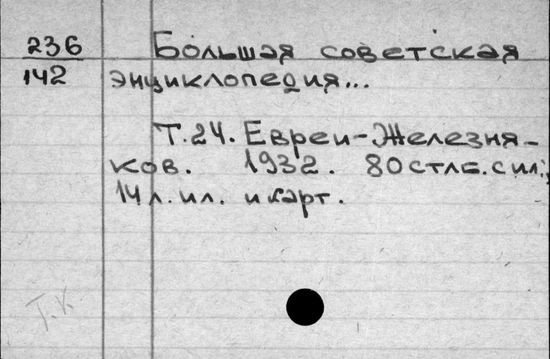 236
142
Большая советская
энциклопедия...
Т.24. Евреи-Железня-
ков. 1932. 80 стлб. с ил.;
14 л. ил. и карт.
Т.К